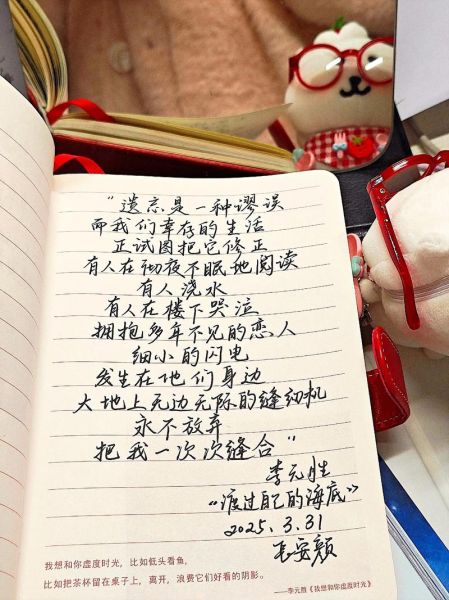 “遗忘是一种谬误
而我们幸存的生活
正试图把它修正
有人在彻夜不眠地阅读
有人浇水
有人在楼下哭泣
拥抱多年不见的恋人
细小的闪电
发生在他们身边
大地上无边无际的缝纫机
永不放弃
把我一次次缝合”
李元胜
“渡过自己的海底”
2025.3.31
我想和你虚度时光，比如低头看鱼，
比如把茶杯留在桌子上，离开，浪费它们好看的阴影。
——李元胜《我想和你虚度时光》